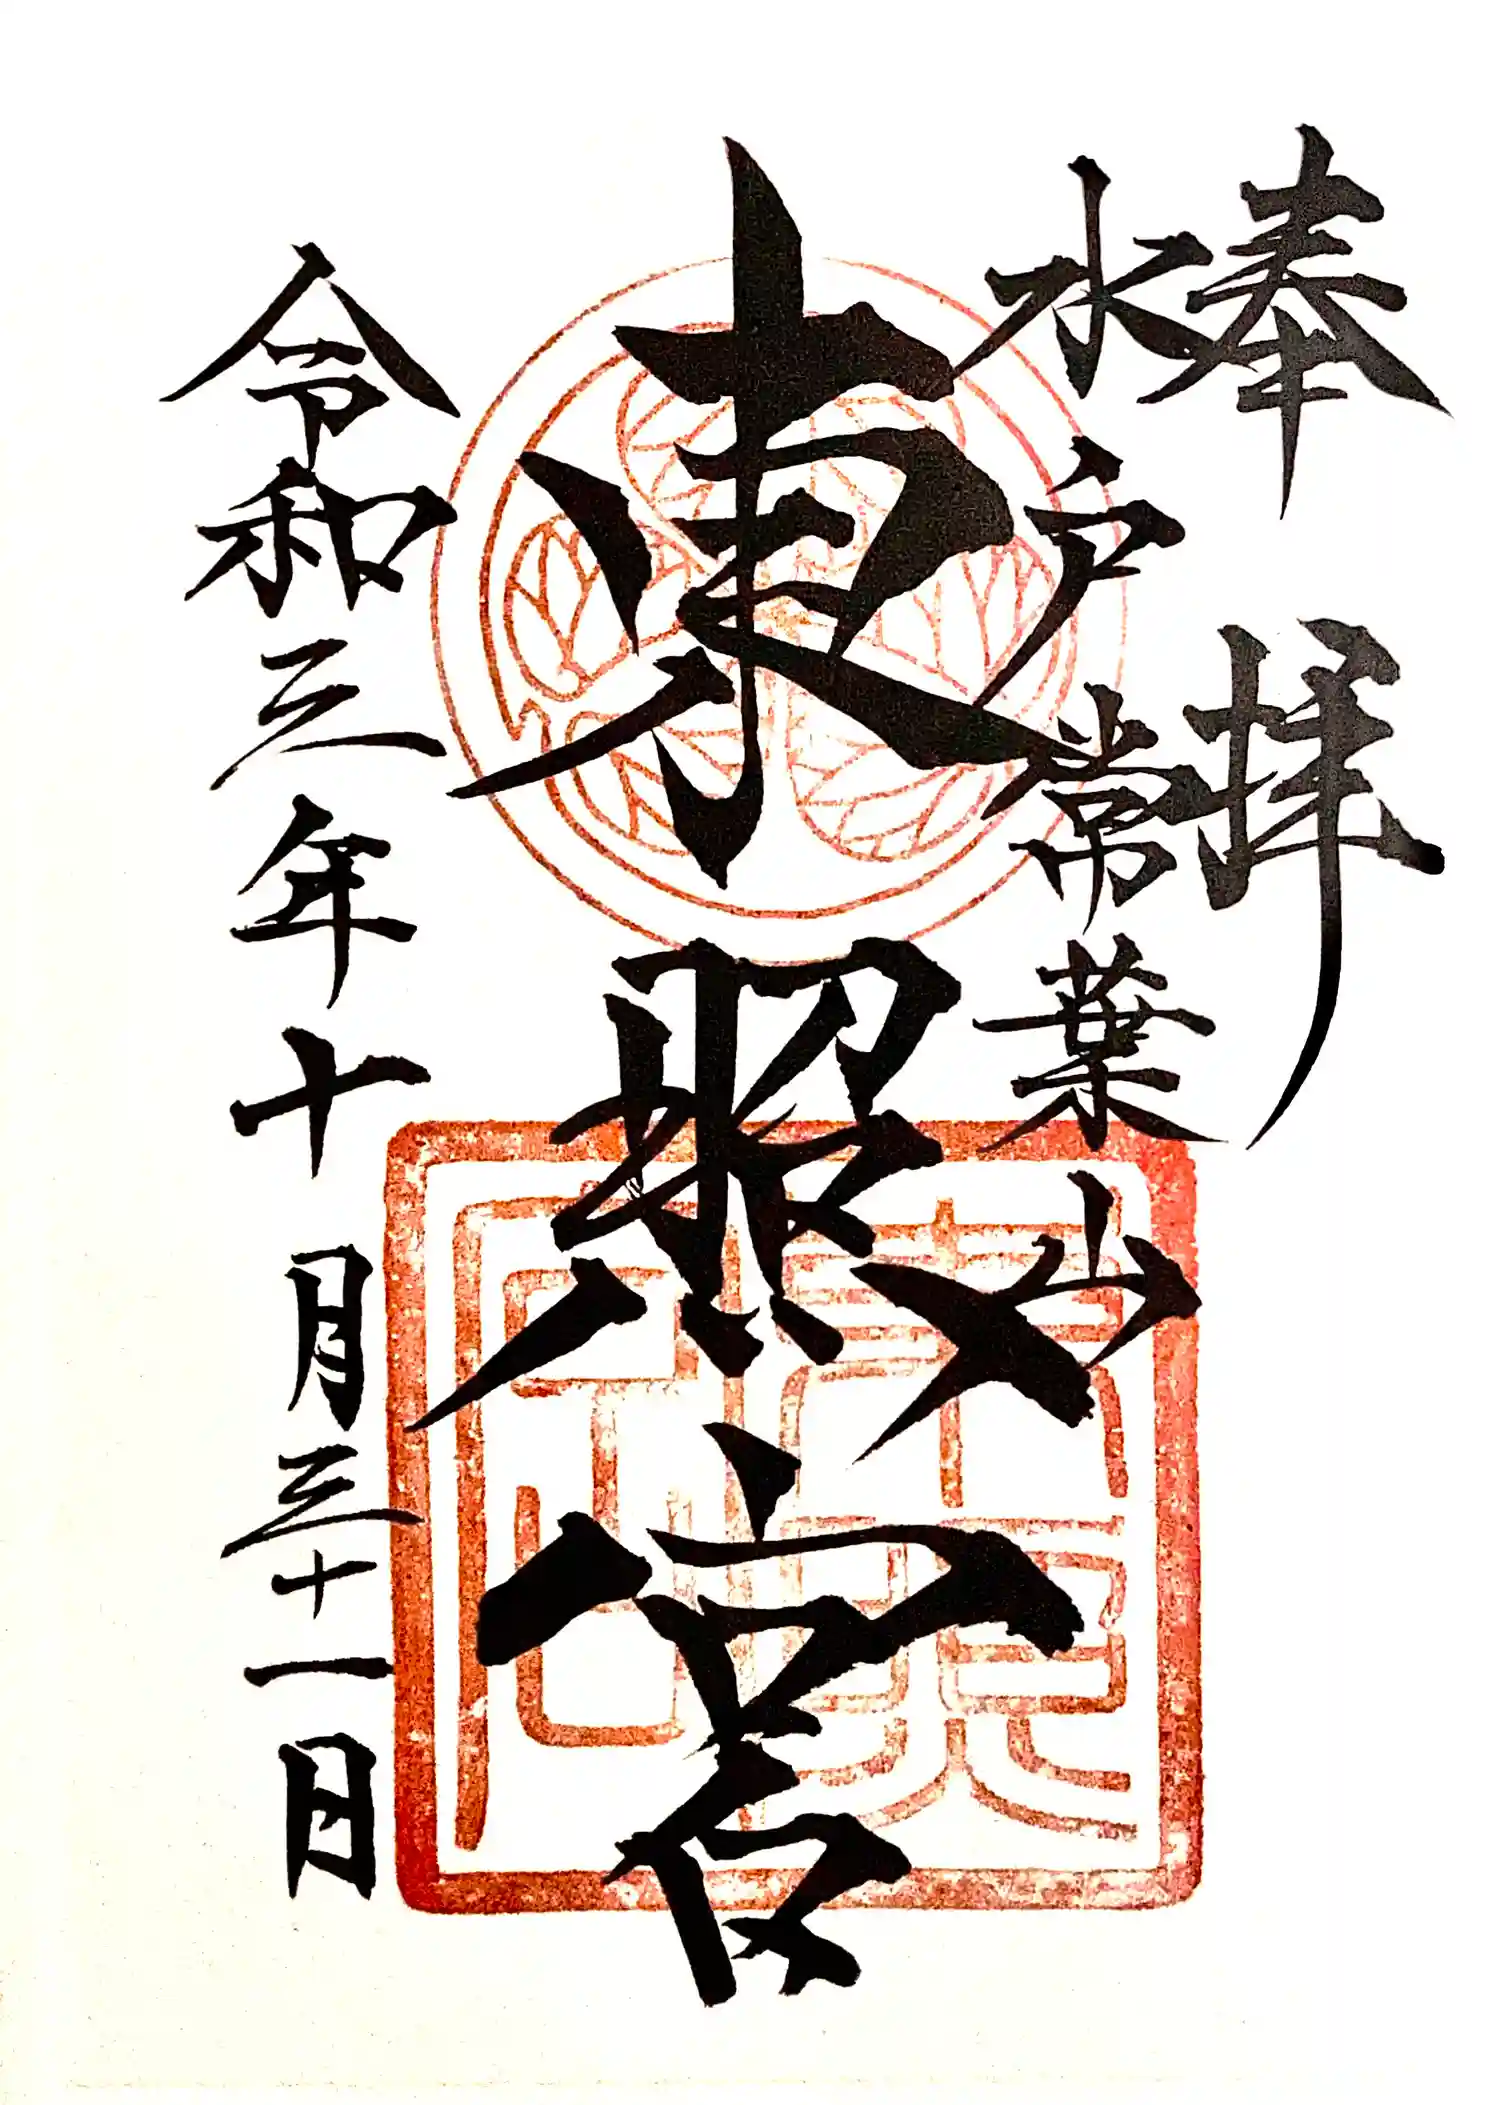 奉拝
水戸常葉山
東照宮
令和三年十月三十一日
東照宮印